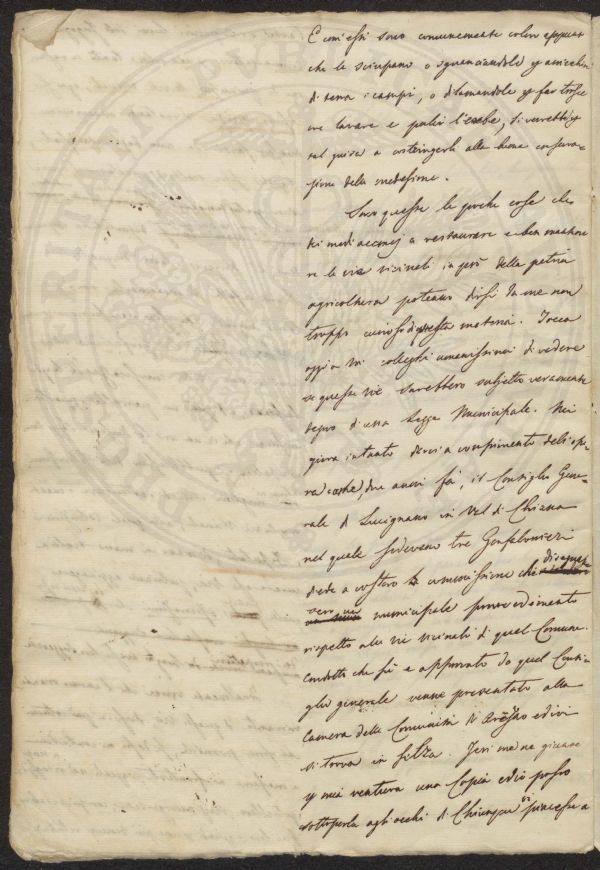 E com'essi sono comunemente coloro appunto
che le sciupano o sguanciandole p arricchir
di terra i campi, o dilamandole p far
lavare e pulir l'erbe, si verrebbe
tal guisa a costringerli alla buona conserva-
zione della medesima.
Sono queste le poche cose che
dei modi acconcj a restaurare e ben mantene
re le vie vicinali in prò della patria
agricoltura poteano dirsi da me non
troppo curioso di questa materia. Tocca
oggi a Voi colleghi umanissimi di vedere
se queste vie sarebbero subjetto veramente
degno di una Legge Municipale. Mi
giova intanto dirvi a compimento dell'ope
ra come, due anni fà, il Consiglio Gene-
rale di Lucignano in Val di Chiana
nel quale sedevano tre Gonfalonieri
diede a costoro la commissione che disegnasse
municipale provvedimento
rispetto alle vie vicinali di quel Comune.
Condotto che fù e approvato da quel Consi-
glio generale venne presentato alla
Camera della Comunità di Arezzo ed ivi
si trova in filza. Jeri me ne giunse
p mia ventura una Copia ed io posso
sottoporla agli occhi di Chiunque vi piacesse a